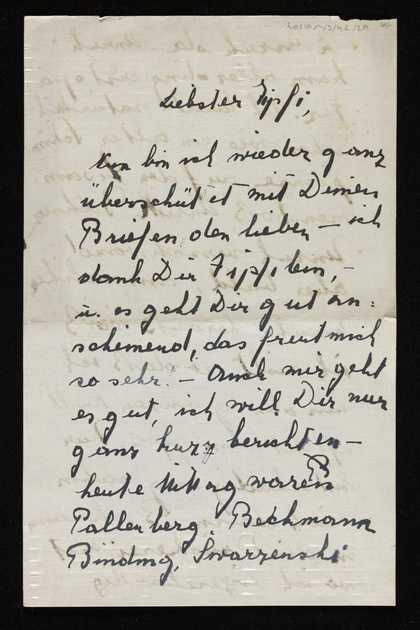 Liebster Tipfi,
Nun bin ich wieder ganz
überschüttet mit Deinen
Briefen, den lieben – ich
dank Dir Tipfilein, –
u. es geht Dir gut an=
scheinend, das freut mich
so sehr. – Auch mir geht
es gut, ich will Dir nur
ganz kurz berichten –
heute Mittag waren
Pallenberg, Beckmann
Binding, Swarzenski